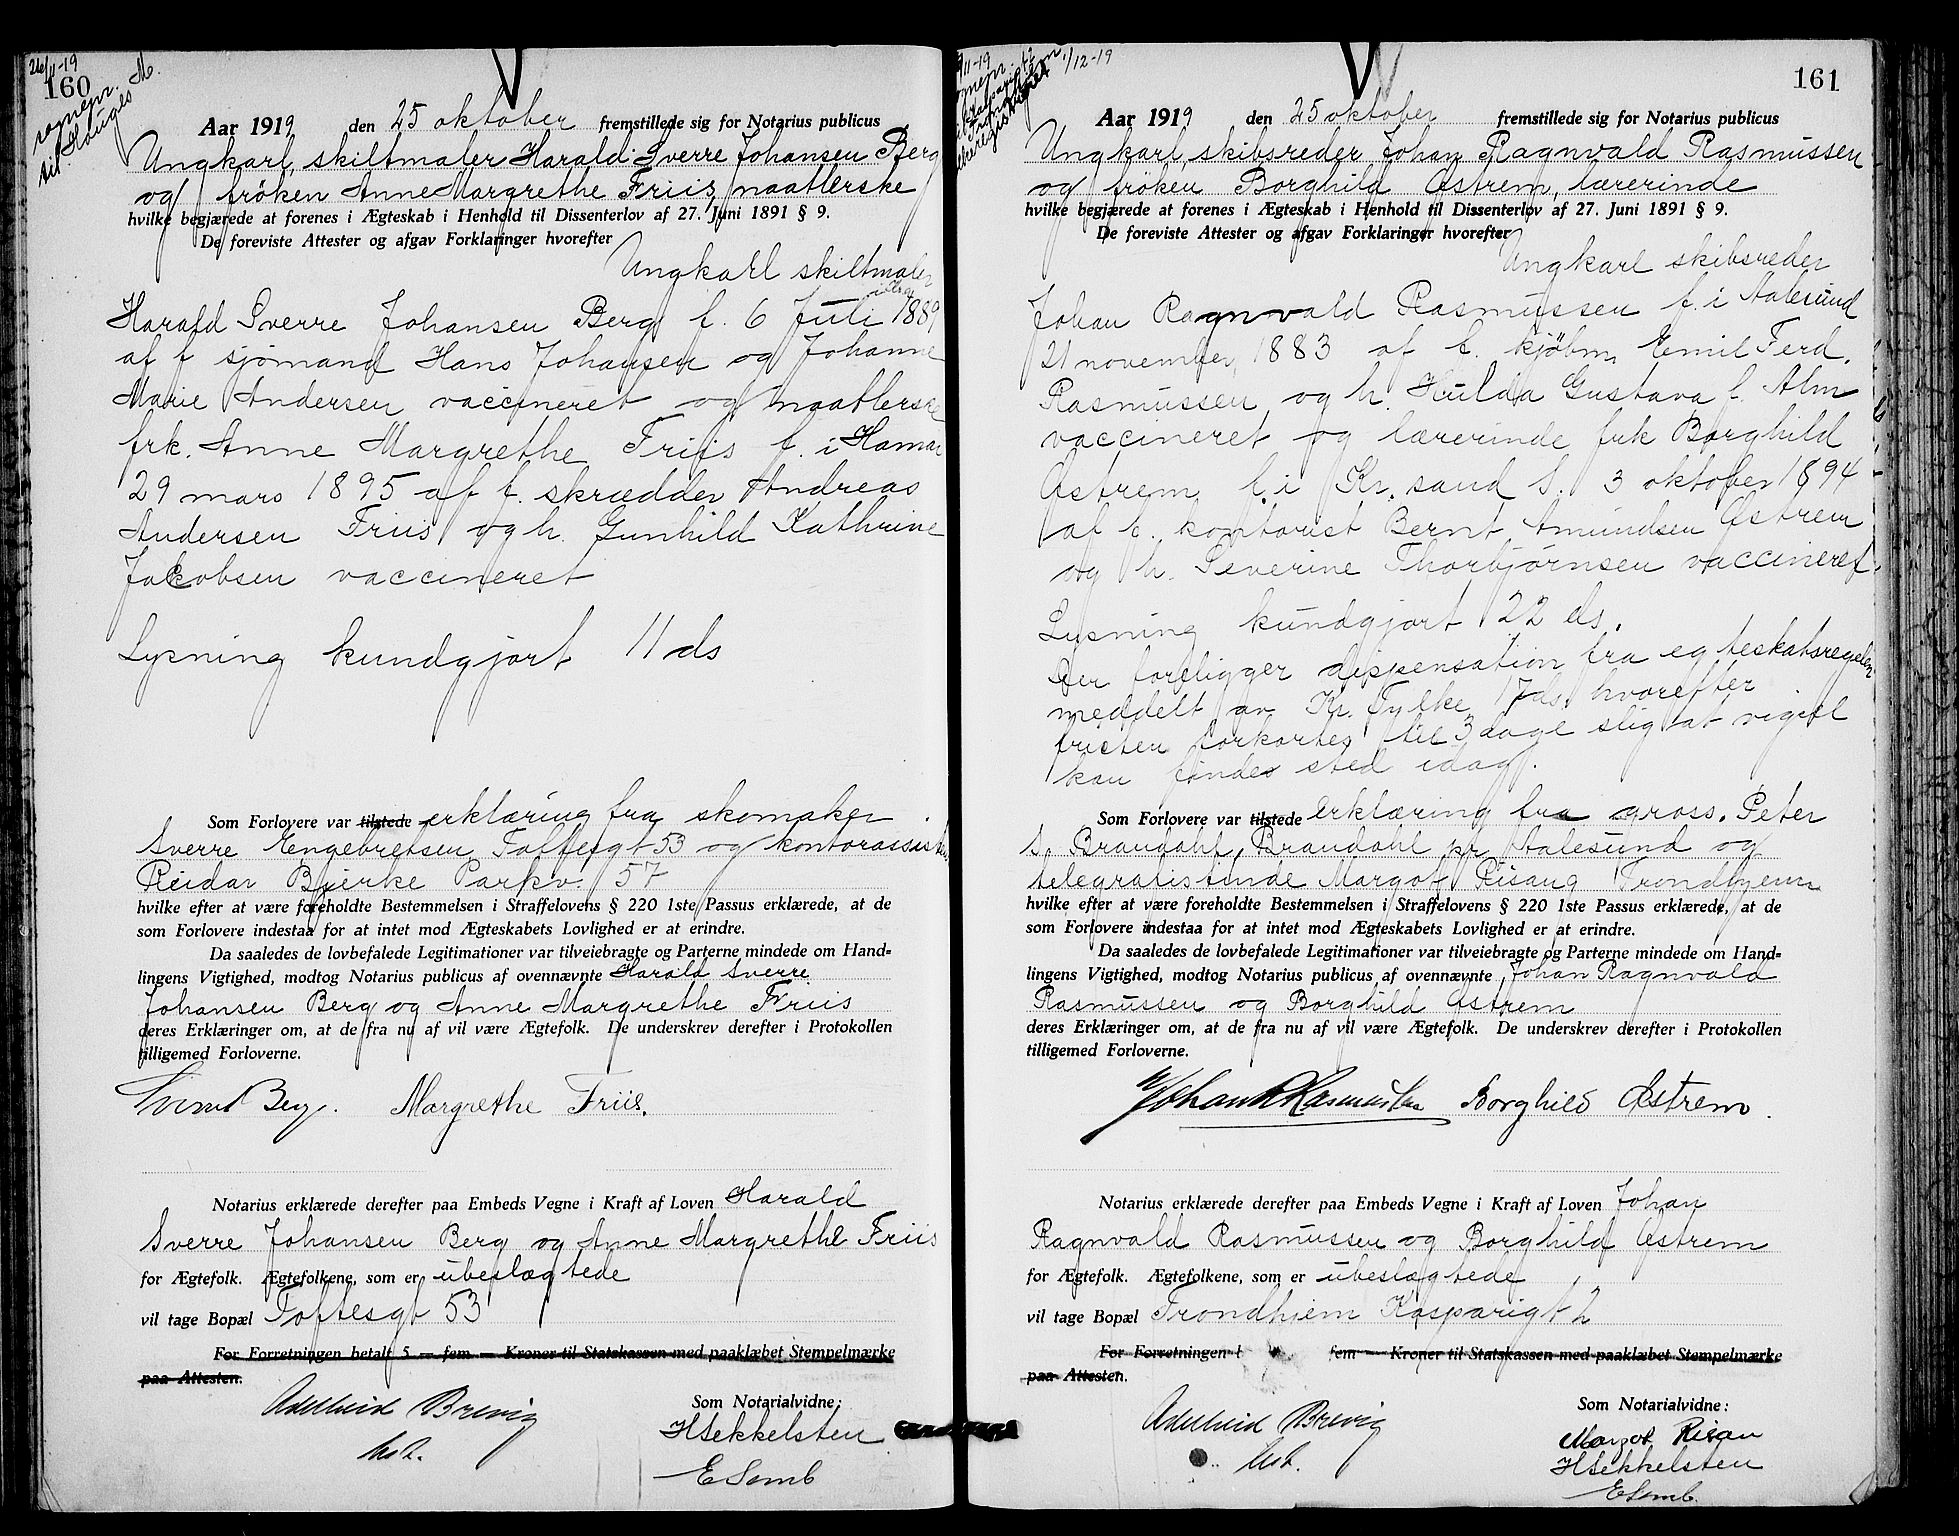 26/11-19
160
til Hauges M.
Aar 1919 den 25 oktober fremstillede sig for Notarius publicus
Ungkarl, skiltmaler Harald Sverre Johansen Berg
og fröken Anne Margrethe Friis, maatlerske
hvilke begjærede at forenes i Ægteskab i Henhold til Dissenterlov af 27. Juni 1891 § 9.
De foreviste Attester og afgav Forklaringer hvorefter
Ungkarl skiltmaler
Harald Sverre Johansen Berg f. 6 Juli 1889
af f sjömand Hans Johansen og Johanne
Marie Andersen vaccineret og maatlerske
frk. Anne Margrethe Friis f. i Hamar
29 mars 1895 af f. skrædder Andreas
Andersen Friis og h. Gunhild Kathrine
Jakobsen vaccineret
Lysning kundgjort 11 ds
Som Forlovere var tilstede erklæring fra skomaker
Sverre Engebretsen Toftesgt 53 og kontorassistent
Reidar Bjerke Parkv. 57
hvilke efter at være foreholdte Bestemmelsen i Straffelovens § 220 1ste Passus erklærede, at de
som Forlovere indestaa for at intet mod Ægteskabets Lovlighed er at erindre.
Da saaledes de lovbefalede Legitimationer var tilveiebragte og Parterne mindede om Hand-
lingens Vigtighed, modtog Notarius publicus af ovennævnte Harald Sverre
Johansen Berg og Anne Margrethe Friis
deres Erklæringer om, at de fra nu af vil være Ægtefolk. De underskrev derefter i Protokollen
tilligemed Forloverne.
Sverre Berg. Margrethe Friis.
Notarius erklærede derefter paa Embeds Vegne i Kraft af Loven Harald
Sverre Johansen Berg og Anne Margrethe Friis
for Ægtefolk. Ægtefolkene, som er ubeslægtede
vil tage Bopæl Toftesgt 53
For Forretningen betalt 5 — fem — Kroner til Statskassen med paaklæbet Stempelmærke
paa Attesten.
Adelheid Brevig
Som Notarialvidne:
HSekkelsten
E Semb
11-19
1/12-19
161
Aar 1919 den 25 oktober fremstillede sig for Notarius publicus
Ungkarl, skibsreder Johan Ragnvald Rasmussen
og fröken Borghild Østrem, lærerinde
hvilke begjærede at forenes i Ægteskab i Henhold til Dissenterlov af 27. Juni 1891 § 9.
De foreviste Attester og afgav Forklaringer hvorefter
Ungkarl skibsreder
Johan Ragnvald Rasmussen f. i Aalesund
21 november 1883 af f. kjöbm. Emil Ferd.
Rasmussen og h. Hulda Gustava f. Alm
vaccineret og lærerinde frk Borghild
Østrem f. i Kr. sand S. 3 oktober 1894
af f. kontorist Bernt Amundsen Østrem
og h. Severine Thorbjørnsen vaccineret.
Lysning kundgjort 22 ds.
Der foreligger dispensation fra egteskabsregelen
meddelt av Kr. Fylke 17 ds. hvorefter
fristen forkortes til 3 dage slig at vigsel
kan findes sted idag.
Som Forlovere var tilstede erklæring fra gross. Peter
S. Brandahl, Brandahl pr Aalesund og
telegrafistinde Margot Risan Trondhjem
hvilke efter at være foreholdte Bestemmelsen i Straffelovens § 220 1ste Passus erklærede, at de
som Forlovere indestaa for at intet mod Ægteskabets Lovlighed er at erindre.
Da saaledes de lovbefalede Legitimationer var tilveiebragte og Parterne mindede om Hand-
lingens Vigtighed, modtog Notarius publicus af ovennævnte Johan Ragnvald
Rasmussen og Borghild Østrem
deres Erklæringer om, at de fra nu af vil være Ægtefolk. De underskrev derefter i Protokollen
tilligemed Forloverne.
Johan R Rasmussen Borghild Østrem.
Notarius erklærede derefter paa Embeds Vegne i Kraft af Loven Johan
Ragnvald Rasmussen og Borghild Østrem
for Ægtefolk. Ægtefolkene, som er ubeslægtede
vil tage Bopæl Trondhjem Kasparigt 2
For Forretningen fem — Kroner til Statskassen med paaklæbet Stempelmærke
paa Attesten.
Adelheid Brevig
Som Notarialvidne:
Margot Risan
HSekkelsten
E Semb.